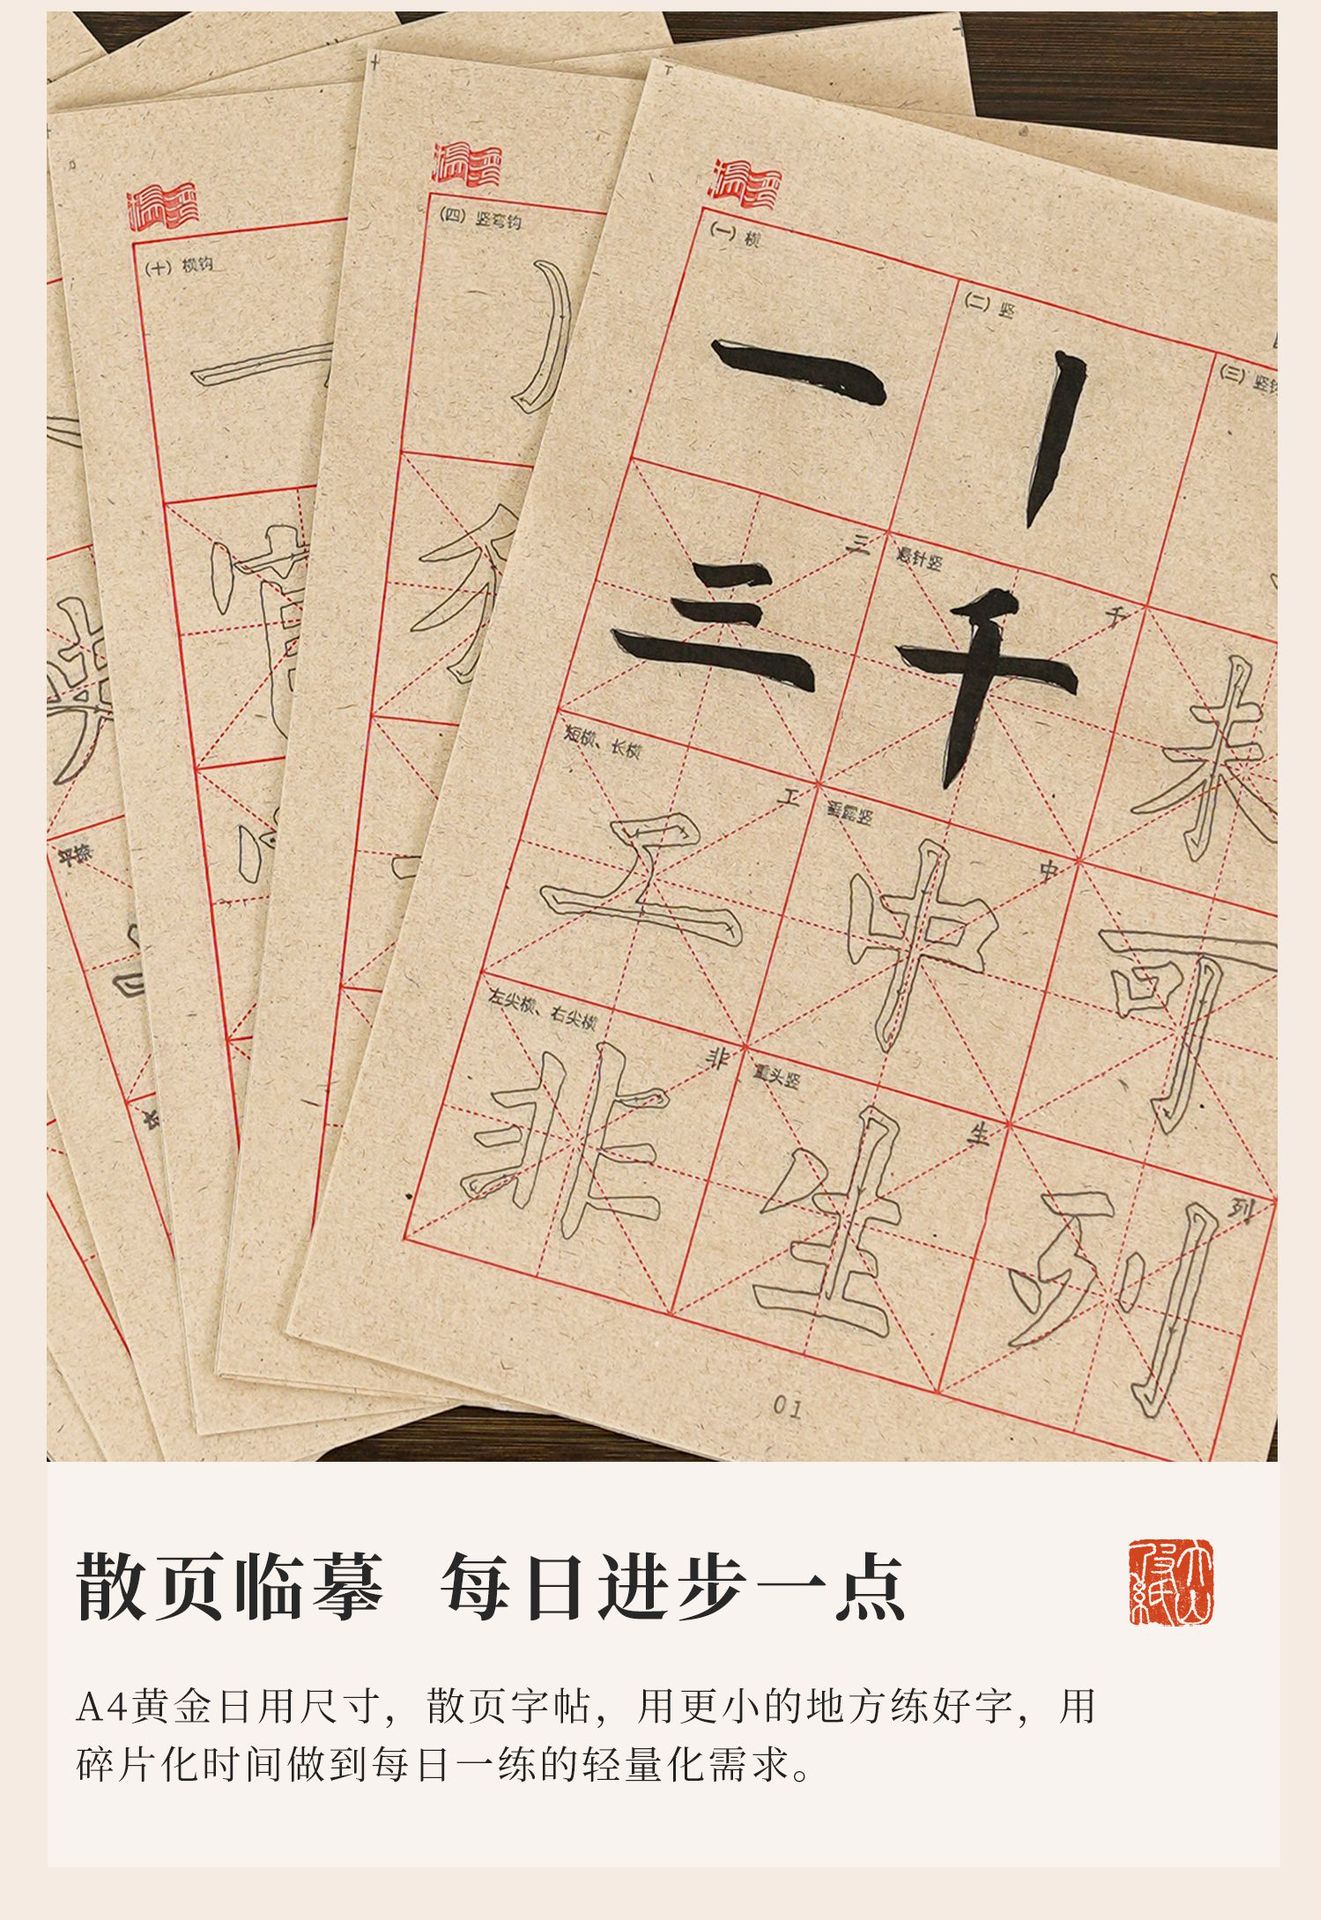 (十) 横钩
(四) 竖弯钩
(一) 横
(二) 竖
(三) 竖钩
三
悬针竖
千
三
千
未
短横、长横
工
垂露竖
中
工
中
可
左尖横、右尖横
非
垂头竖
生
列
非
生
列
01
散页临摹 每日进步一点
A4黄金日用尺寸，散页字帖，用更小的地方练好字，用
碎片化时间做到每日一练的轻量化需求。